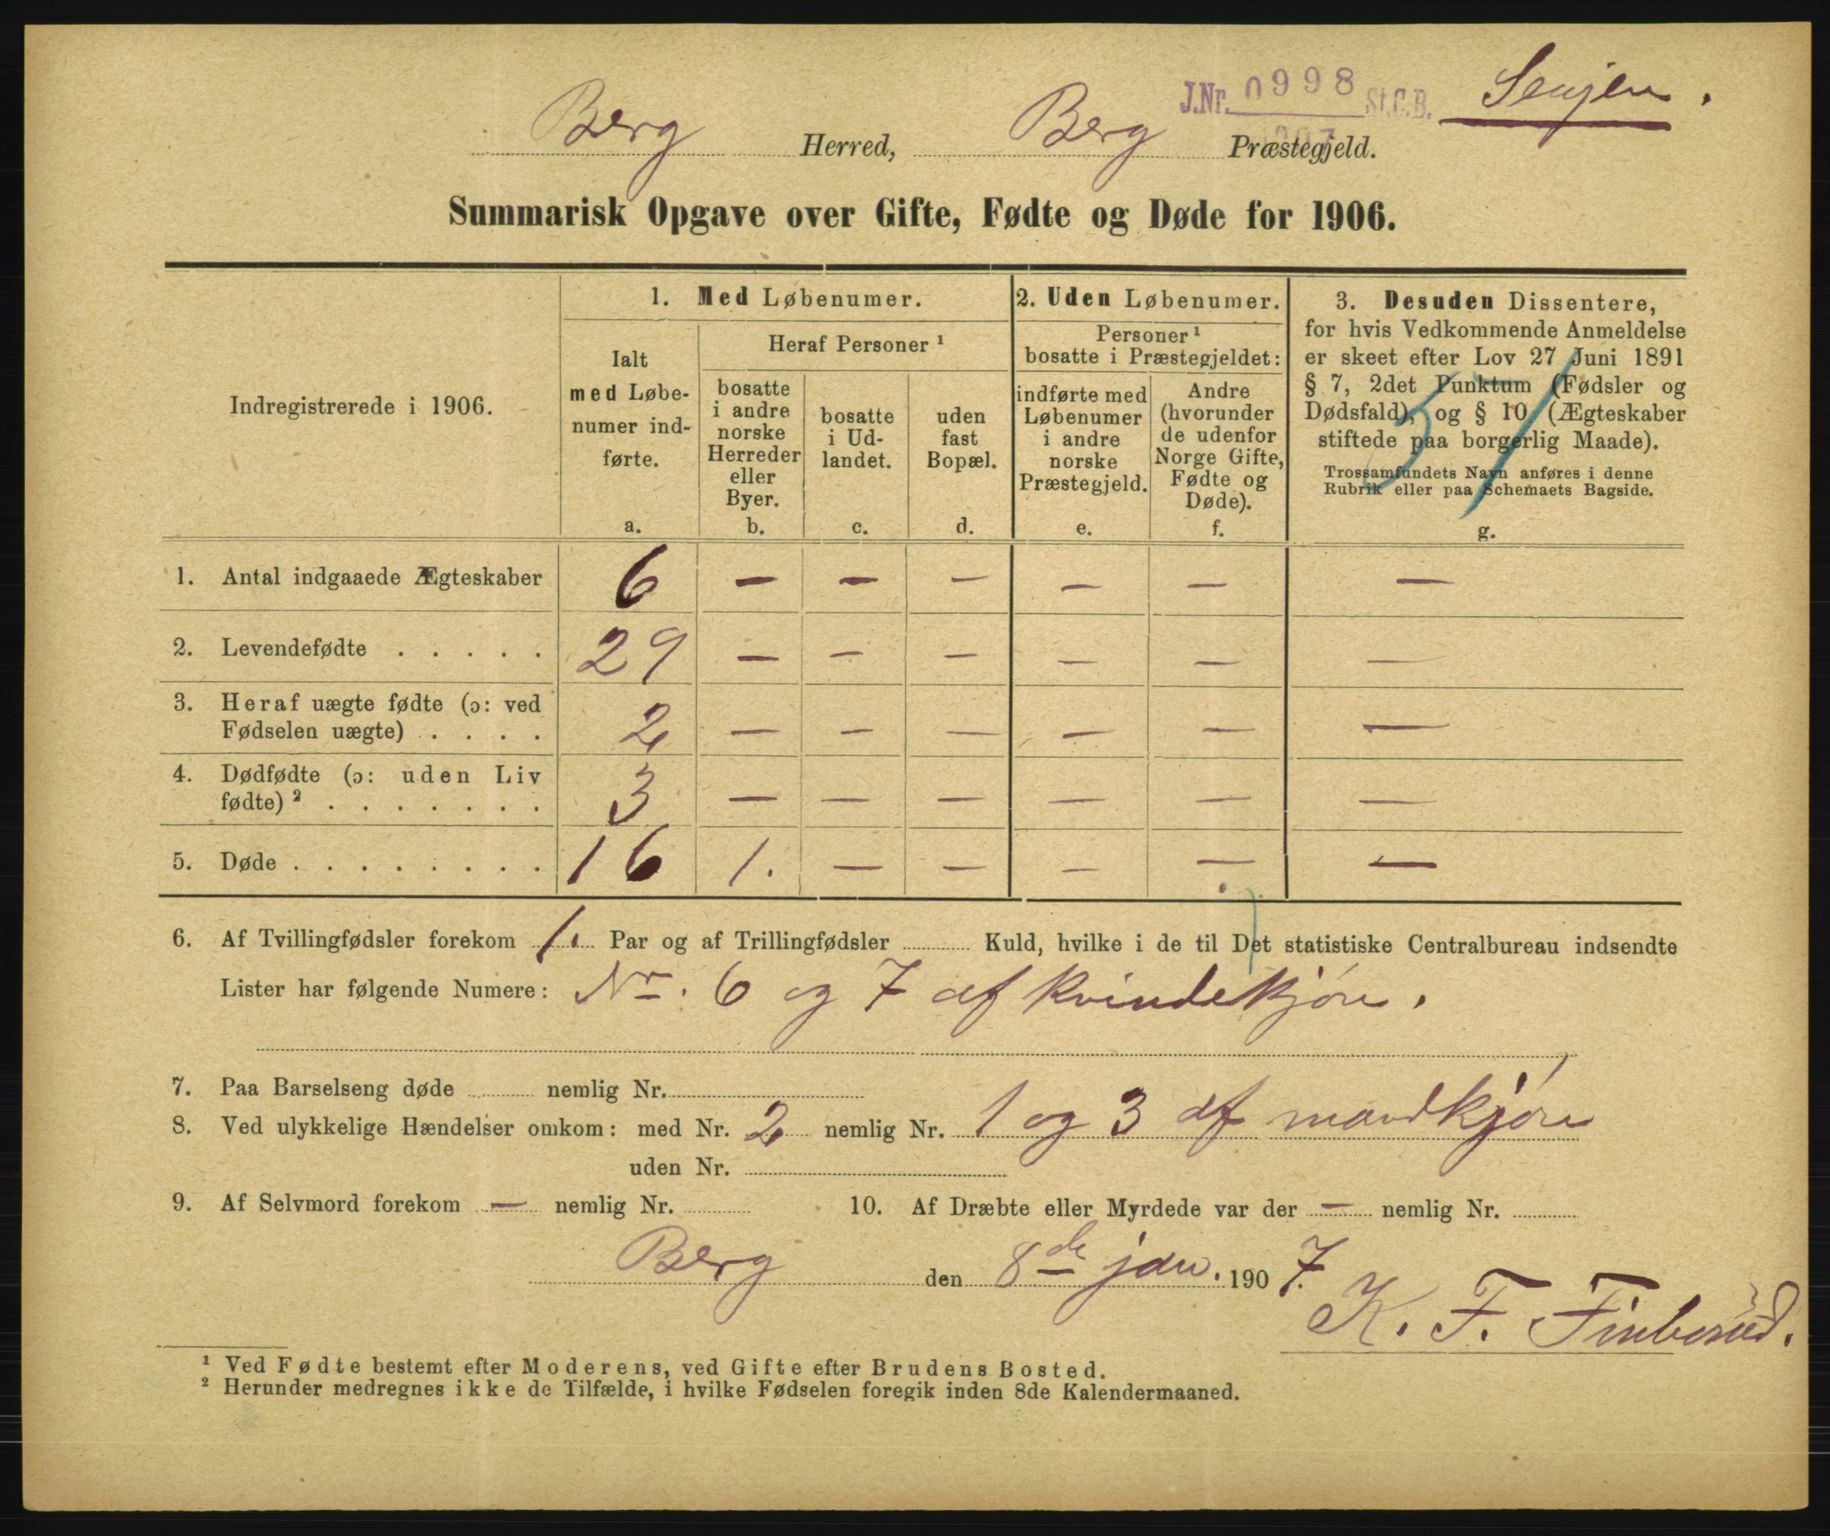 J.Nr. 0998 St.C.B. Senjen.
Berg Herred, Berg Præstegjeld.
Summarisk Opgave over Gifte, Fødte og Døde for 1906.
Indregistrerede i 1906.
1. Med Løbenumer.
Ialt med Løbe-
numer ind-
førte.
a.
Heraf Personer ¹
bosatte
i andre
norske
Herreder
eller
Byer.
b.
bosatte
i Ud-
landet.
c.
uden
fast
Bopæl.
d.
2. Uden Løbenumer.
Personer ¹
bosatte i Præstegjeldet:
indførte med
Løbenumer
i andre
norske
Præstegjeld.
e.
Andre
(hvorunder
de udenfor
Norge Gifte,
Fødte og
Døde).
f.
3. Desuden Dissentere,
for hvis Vedkommende Anmeldelse
er skeet efter Lov 27 Juni 1891
§ 7, 2det Punktum (Fødsler og
Dødsfald), og § 10 (Ægteskaber
stiftede paa borgerlig Maade).
Trossamfundets Navn anføres i denne
Rubrik eller paa Schemaets Bagside.
g.
1. Antal indgaaede Ægteskaber 6 — — — — — —
2. Levendefødte . . . . . 29 — — — — — —
3. Heraf uægte fødte (ɔ: ved
Fødselen uægte) . . . . 2 — — — — — —
4. Dødfødte (ɔ: uden Liv
fødte) ² . . . . . . . 3 — — — — — —
5. Døde . . . . . . . . 16 1. — — — — —
6. Af Tvillingfødsler forekom 1. Par og af Trillingfødsler Kuld, hvilke i de til Det statistiske Centralbureau indsendte
Lister har følgende Numere: Nr. 6 og 7 af kvindekjøn.
7. Paa Barselseng døde nemlig Nr.
8. Ved ulykkelige Hændelser omkom: med Nr. 2 nemlig Nr. 1 og 3 af mandkjøn
uden Nr.
9. Af Selvmord forekom — nemlig Nr. 10. Af Dræbte eller Myrdede var der — nemlig Nr.
Berg den 8de jan. 1907.
K. F. Finberud.
¹ Ved Fødte bestemt efter Moderens, ved Gifte efter Brudens Bosted.
² Herunder medregnes ikke de Tilfælde, i hvilke Fødselen foregik inden 8de Kalendermaaned.